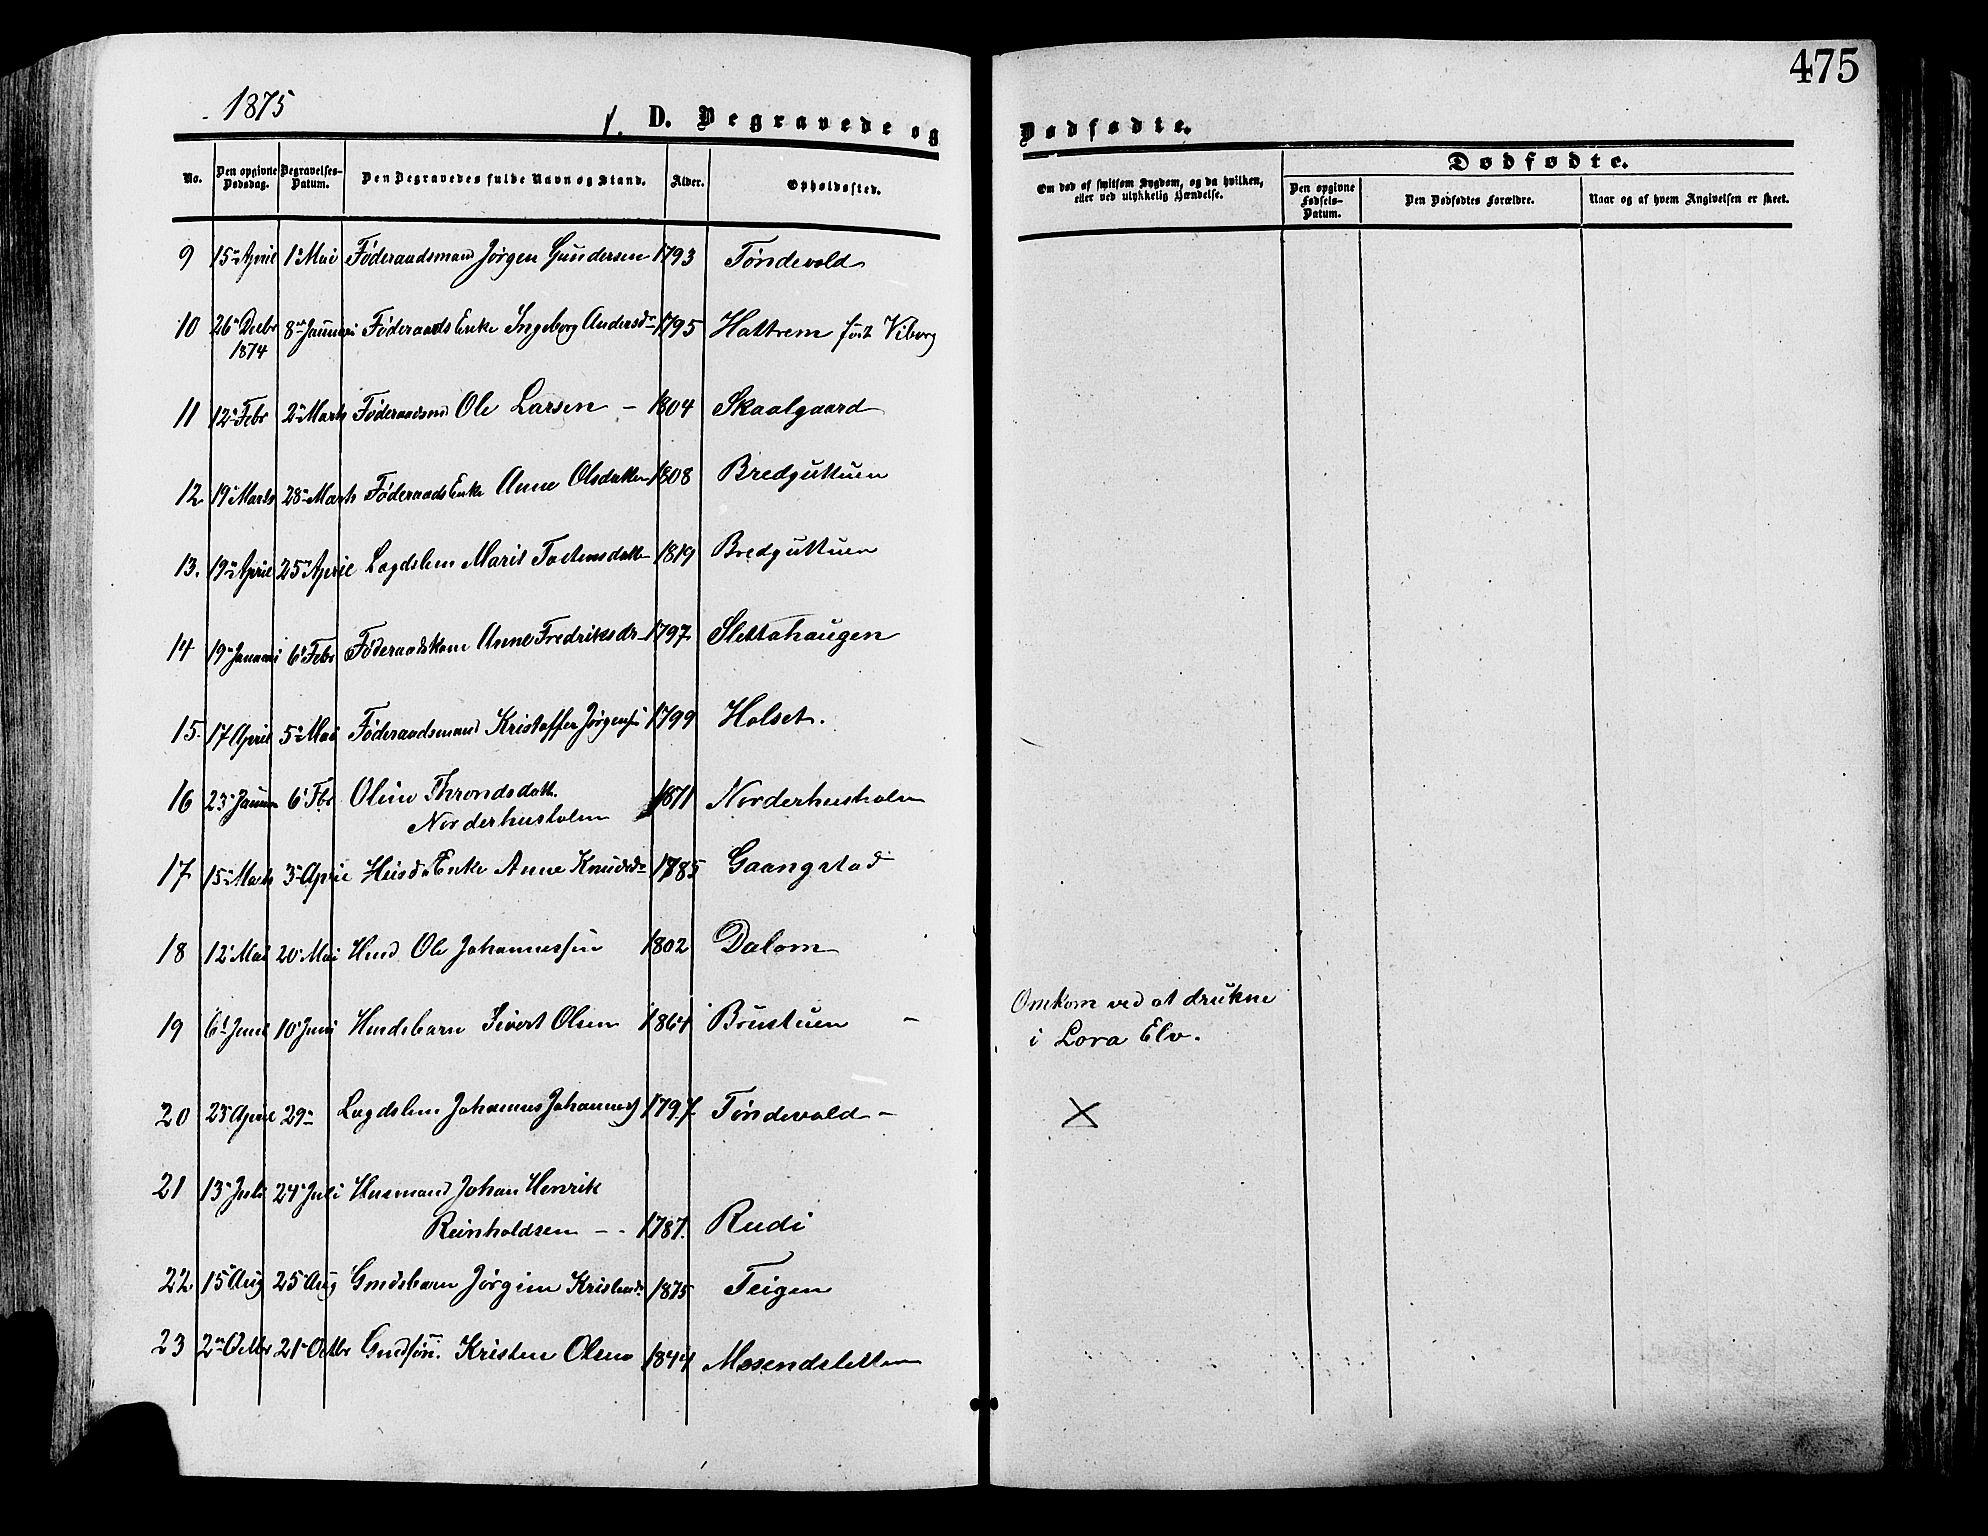 475
1875
1. D. Begravede og Dødfødte.
No. Den opgivne Dødsdag. Begravelses-Datum. Den Begravedes fulde Navn og Stand. Alder. Opholdssted. Om død af smitsom Sygdom, og da hvilken, eller ved ulykkelig Hændelse. Dødfødte.
Den opgivne Fødsels-Datum. Den Dødfødtes Forældre. Naar og af hvem Angivelsen er skeet.
9 15de April 1ste Mai Føderaadsmand Jørgen Gundersen 1793 Tøndevold
10 26de Decbr 1874 8de Januari Føderaads Enke Ingeborg Andersdr 1795 Hattrem født Viborg
11 12te Febr 2de Marts Føderaadsmd Ole Larsen – 1804 Skaalgaard
12. 19de Marts 28de Marts Føderaads Enke Anne Olsdatter 1808 Bredguttuen
13. 19de April 25de April Lægdslem Marit Tostensdatter 1819 Bredguttuen
14 19de Januari 6te Febr Føderaadskone Anne Fredriksdr 1797 Slettahaugen
15. 17 April 5te Mai Føderaadsmand Kristoffer Jørgens 1799 Holset.
16 23de Januar 6te Fbr Oline Throndsdatt. 1871 Norderhusholm
Norderhusholm
17 15de Marts 3de April Anne Knudsdr 1785 Gaangstad
18 12te Mai 20 Mai Hmd Ole Johannessen 1802 Dalom
19 6te Juni 10de Juni Hmdsbarn Sivert Olsen 1864 Brustuen – Omkom ved at drukne
i Lora Elv.
20 23de April 29de Lægdslem Johannes Johanness 1797 Tøndevold – X
21 13de Juli 24de Juli Husmand Johan Henrik
Reinholdsen – - 1787. Rudi
22 15de Aug 25 Aug Gmdsbarn Jørgine Kristensdr 1875 Teigen
23 2den Octbr 21de Octbr Gmdsøn. Kristen Olsen 1844 Mosendsletten